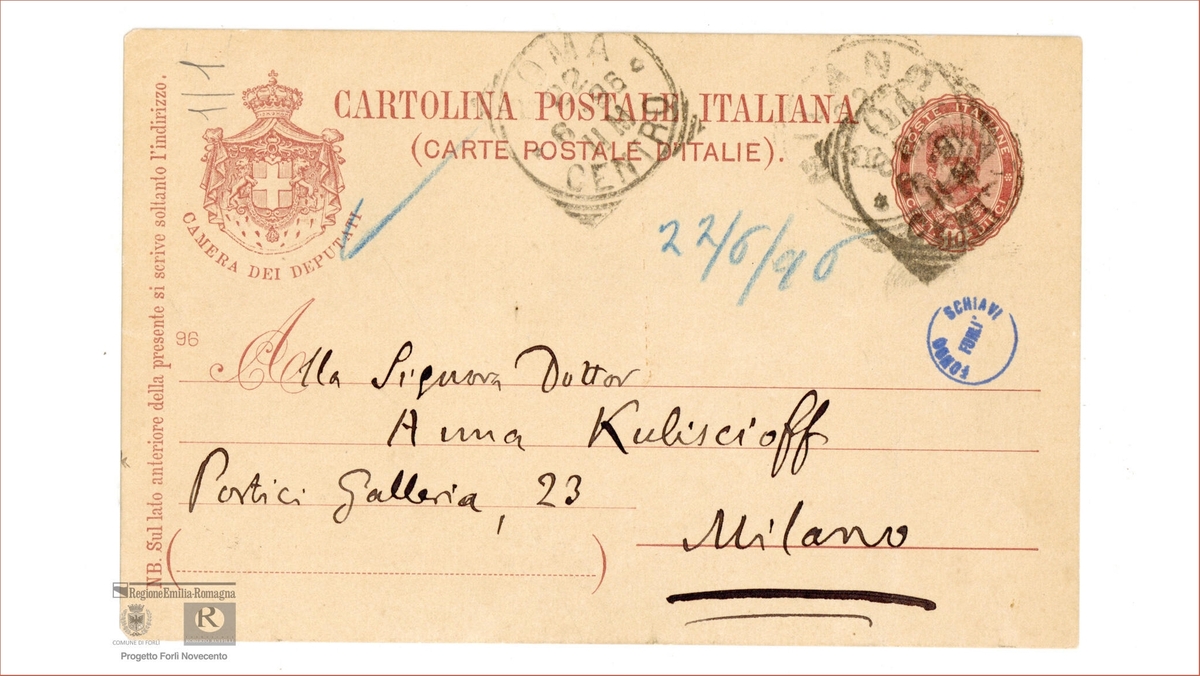 1/1
CARTOLINA POSTALE ITALIANA
(CARTE POSTALE D'ITALIE).
CAMERA DEI DEPUTATI
ROMA
CENTRO
POSTE ITALIANE
22/6/96
SCHIAVI
FORLI'
FONDO
96
Alla Signora Dottor
Anna Kuliscioff
Portici Galleria, 23
Milano
NB. Sul lato anteriore della presente si scrive soltanto l'indirizzo.
RegioneEmilia-Romagna
COMUNE DI FORLÌ
R
Progetto Forlì Novecento